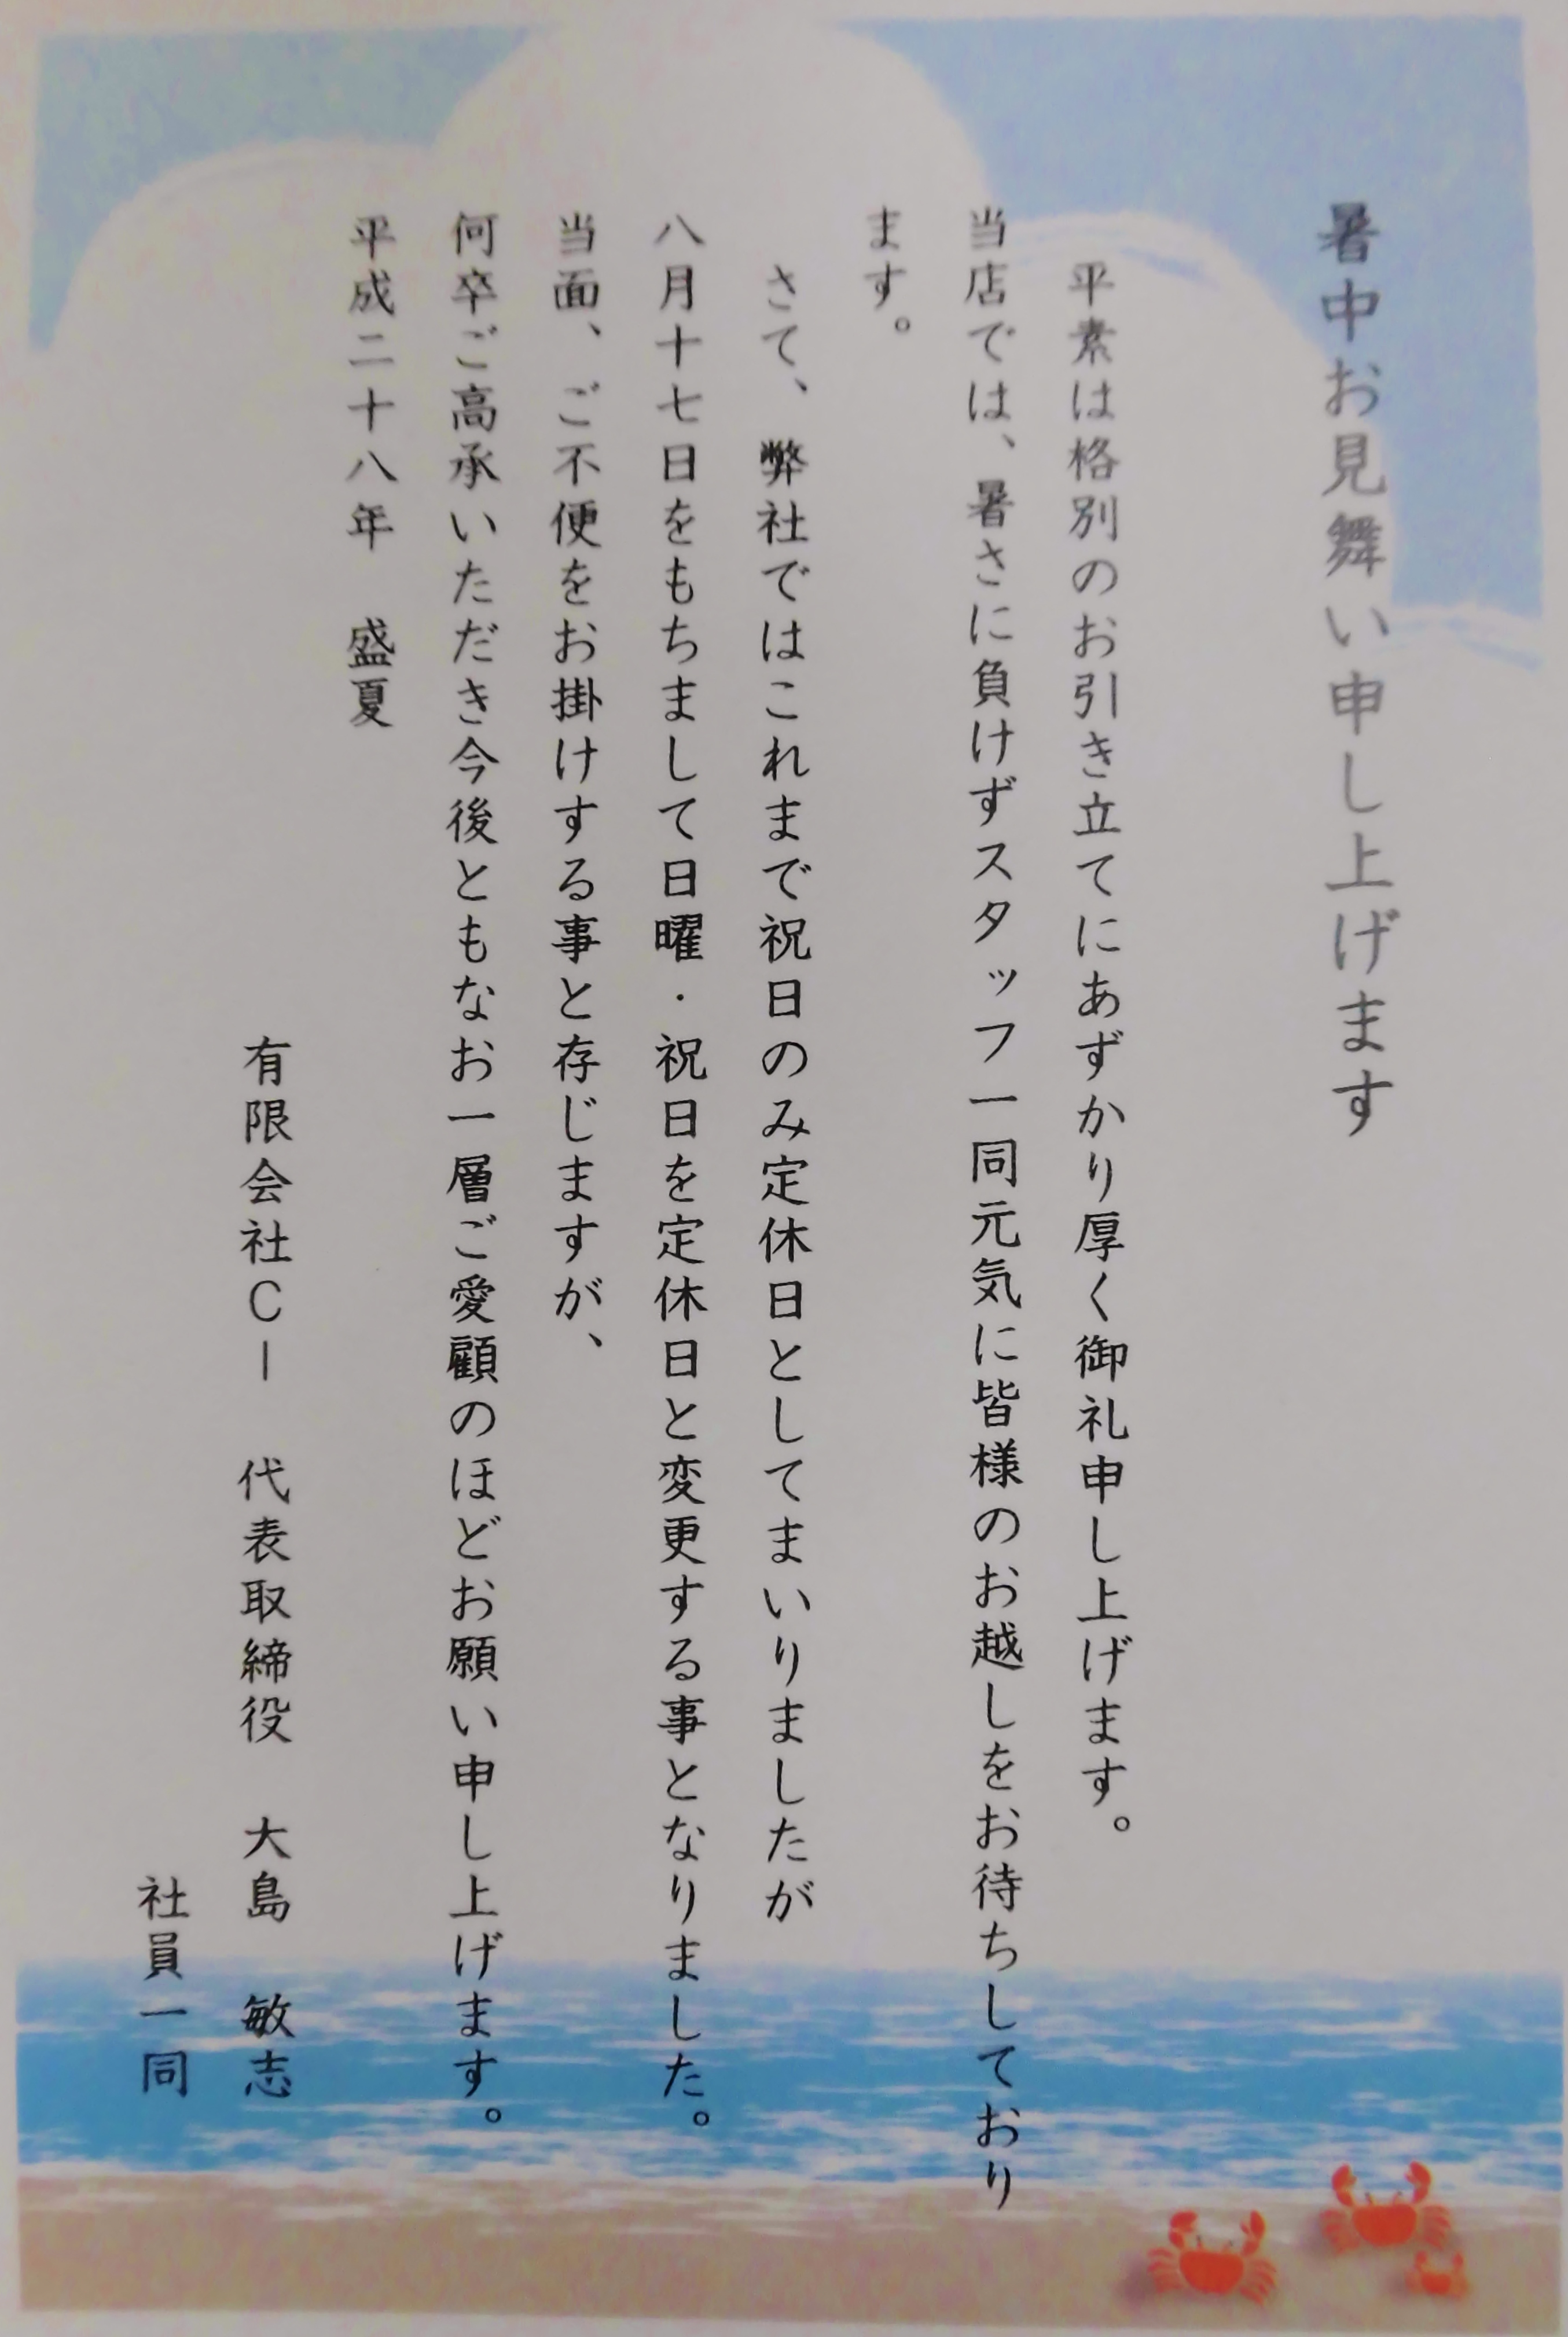 暑中お見舞い申し上げます
平素は格別のお引き立てにあずかり厚く御礼申し上げます。
当店では、暑さに負けずスタッフ一同元気に皆様のお越しをお待ちしており
ます。
さて、弊社ではこれまで祝日のみ定休日としてまいりましたが
八月十七日をもちまして日曜・祝日を定休日と変更する事となりました。
当面、ご不便をお掛けする事と存じますが、
何卒ご高承いただき今後ともなお一層ご愛顧のほどお願い申し上げます。
平成二十八年　盛夏
有限会社ＣＩ　代表取締役　大島　敏志
社員一同